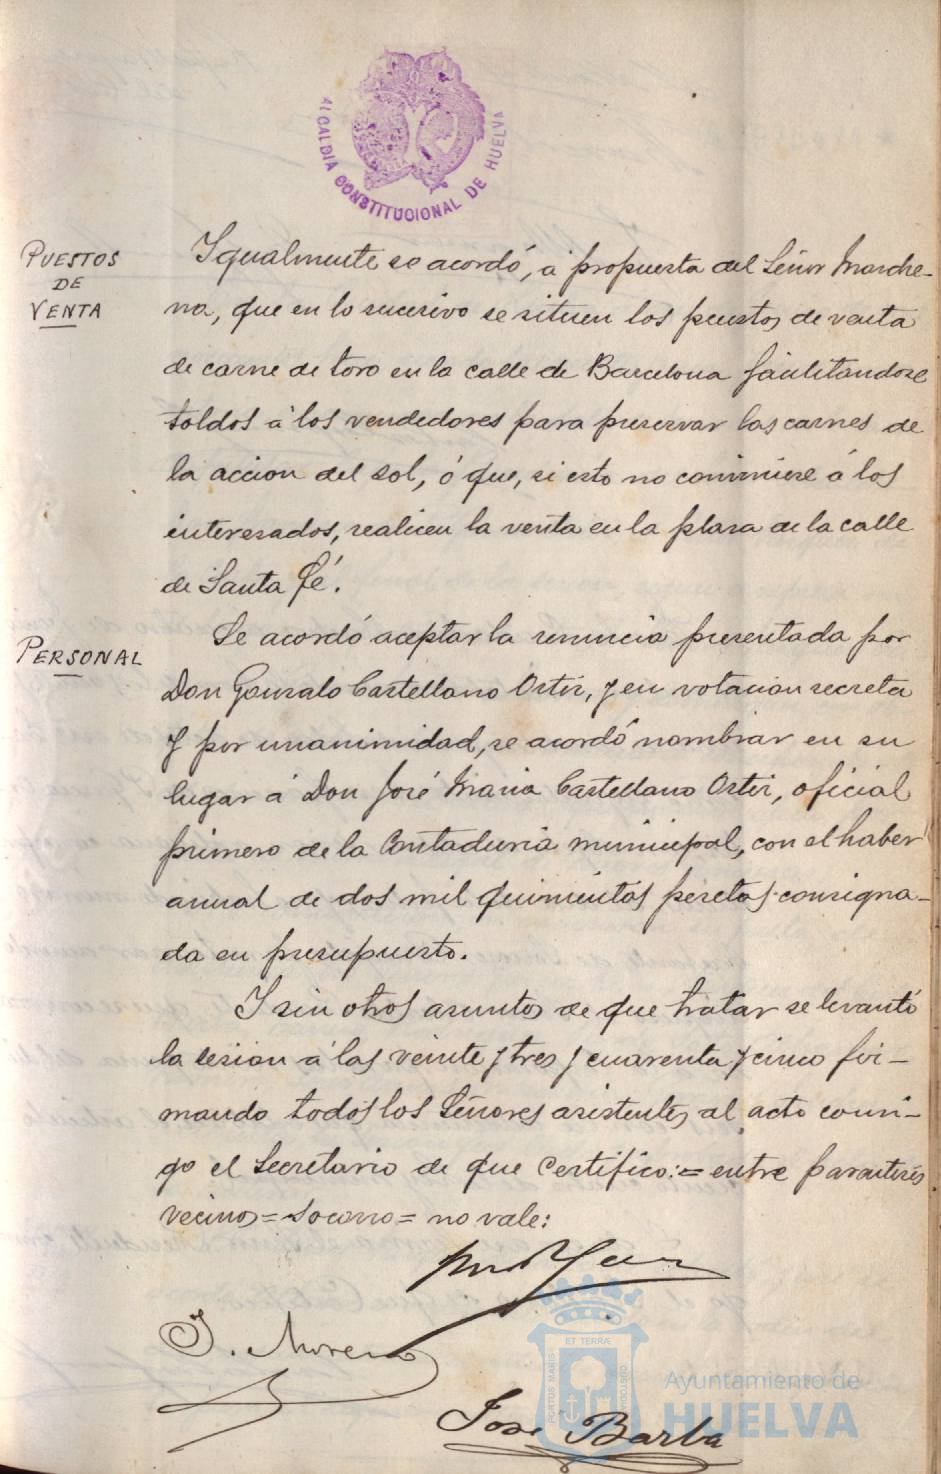 ALCALDIA CONSTITUCIONAL DE HUELVA
PUESTOS
DE
VENTA
Igualmente se acordó, á propuesta del Señor Marche-
na, que en lo sucesivo se situen los puestos de venta
de carne de toro en la calle de Barcelona facilitandose
toldos á los vendedores para preservar las carnes de
la accion del sol, ó que, si esto no conviniese á los
interesados, realicen la venta en la plaza de la calle
de Santa Fé.
PERSONAL
Se acordó aceptar la renuncia presentada por
Don Gonzalo Castellano Ortiz, y en votacion secreta
y por unanimidad, se acordó nombrar en su
lugar á Don José Maria Castellano Ortiz, oficial
primero de la Contaduria municipal, con el haber
anual de dos mil quinientas pesetas consigna-
da en presupuesto.
Y sin otros asuntos de que tratar se levantó
la sesion á las veinte y tres y cuarenta y cinco fir-
mando todos los Señores asistentes al acto conmi-
go el Secretario de que certifico:= entre parentesis
vecinos = Socorro = no vale:
J. Moreno
José Barba
PORTUS MARIS
ET TERRÆ
CUSTODIA
Ayuntamiento de
HUELVA